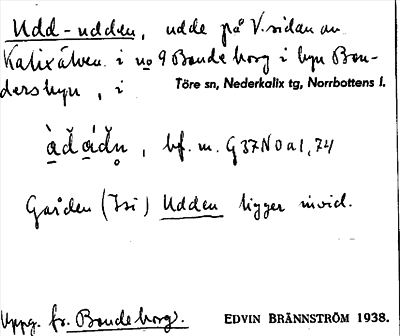 Udd-udden, udde på V. sidan av
Kalixälven i no 9 Bondeborg i byn Bon-
dersbyn, i Töre sn, Nederkalix tg, Norrbottens l.
bf. m. G 37 N 0 a 1, 74
Gården (Isi) Udden ligger invid.
Uppg. fr. Bondeborg. EDVIN BRÄNNSTRÖM 1938.